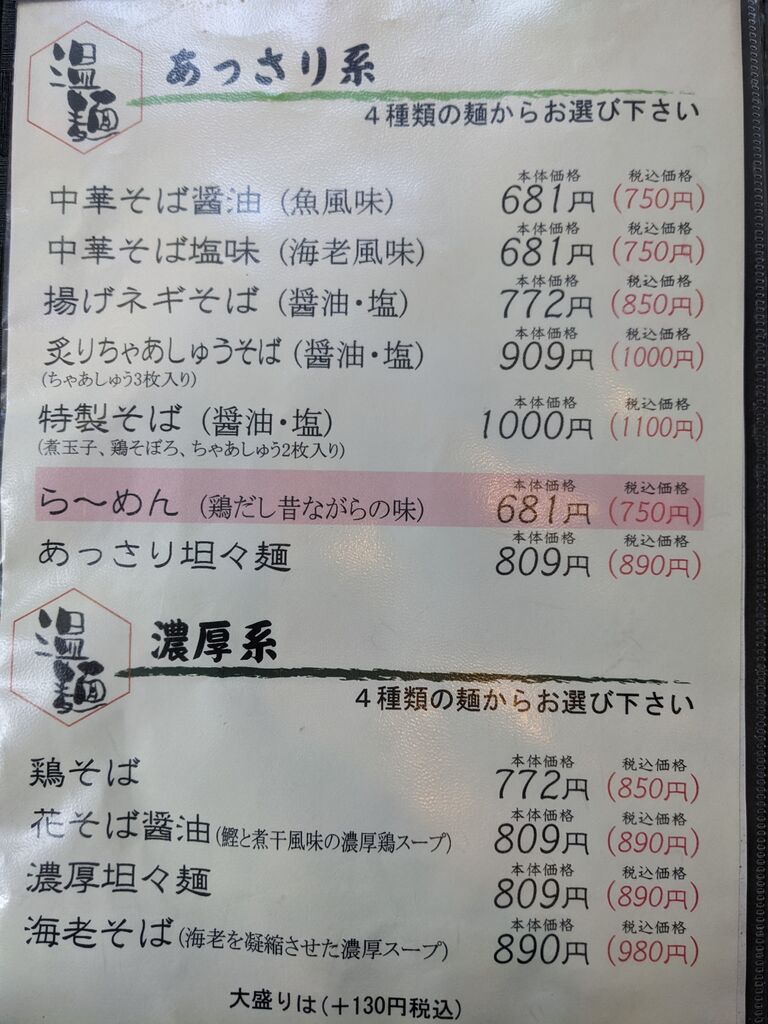 温麺
あっさり系
4種類の麺からお選び下さい
本体価格 税込価格
中華そば醤油(魚風味) 681円(750円)
本体価格 税込価格
中華そば塩味(海老風味) 681円(750円)
本体価格 税込価格
揚げネギそば(醤油・塩) 772円(850円)
本体価格 税込価格
炙りちゃあしゅうそば(醤油・塩) 909円(1000円)
(ちゃあしゅう3枚入り)
本体価格 税込価格
特製そば(醤油・塩) 1000円(1100円)
(煮玉子、鶏そぼろ、ちゃあしゅう2枚入り)
本体価格 税込価格
ら〜めん(鶏だし昔ながらの味) 681円(750円)
本体価格 税込価格
あっさり坦々麺 809円(890円)
温麺
濃厚系
4種類の麺からお選び下さい
本体価格 税込価格
鶏そば 772円(850円)
本体価格 税込価格
花そば醤油(鰹と煮干風味の濃厚鶏スープ) 809円(890円)
本体価格 税込価格
濃厚坦々麺 809円(890円)
本体価格 税込価格
海老そば(海老を凝縮させた濃厚スープ) 890円(980円)
大盛りは(+130円税込)